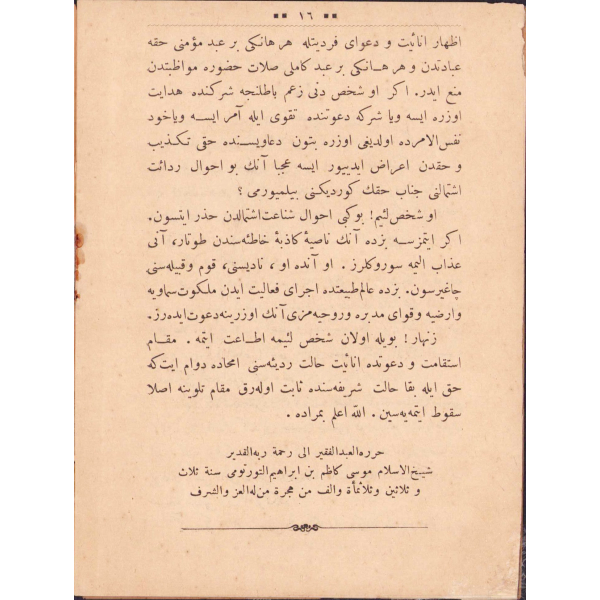 ١٦
اظهار انائیت و دعوای فردیتله هر هانکی بر عبد مؤمنی حقه
عبادتدن و هر هـانـکی بر عبد کاملی صلات حضوره مواظبتدن
منع ایدر. اکر او شخص دنی زعم باطلنجه شرکنده هدایت
اوزره ایسه ویا شرکه دعوتنده تقوی ایله آمر ایســه ویاخود
نفس‌الامرده اولدیغی اوزره بتون دعاویسـنده حقی تکـذیب
و حقدن اعراض ایدییور ایسه عجبا آنك بو احوال ردائت
اشتمالنی جناب حقك کوردیکنی بیلمیورمی ؟
او شخص لئیم! بوکبی احوال شناعت‌اشتمالدن حذر ایتسون.
اکر ایتمزسـه بزده آنك ناصیهٔ کاذبهٔ خاطئه‌سندن طوتار، آنی
عذاب الیمه سوروکلرز . او آنده او ، نادیسنی، قوم وقبیله‌سنی
چاغیرسون. بزده عالم‌طبیعتده اجرای فعالیت ایدن ملکوت‌سماویه
وارضیه وقوای مدبره وروحیه‌مزی آنك اوزرینه‌دعوت‌ایده‌رز.
زنهار! بویله اولان شخص لئیمه اطـاعت ایتمه . مقـام
استقامت و دعوتده انائیت حالت ردیئه‌سنی امحاده دوام ایت‌که
حق ایله بقا حالت شریفه‌سنده ثابت اوله‌رق مقام تلوینه اصلا
سقوط ایتمه‌یه‌سین . الله اعلم بمراده .
حرره‌العبدالفقیر الی رحمة ربه‌القدیر
شیخ‌الاسلام موسی کاظم بن ابراهیم‌التورتومی سنة ثلاث
و ثلاثین وثلاثمأة والف من هجرة من‌له‌العز والشرف